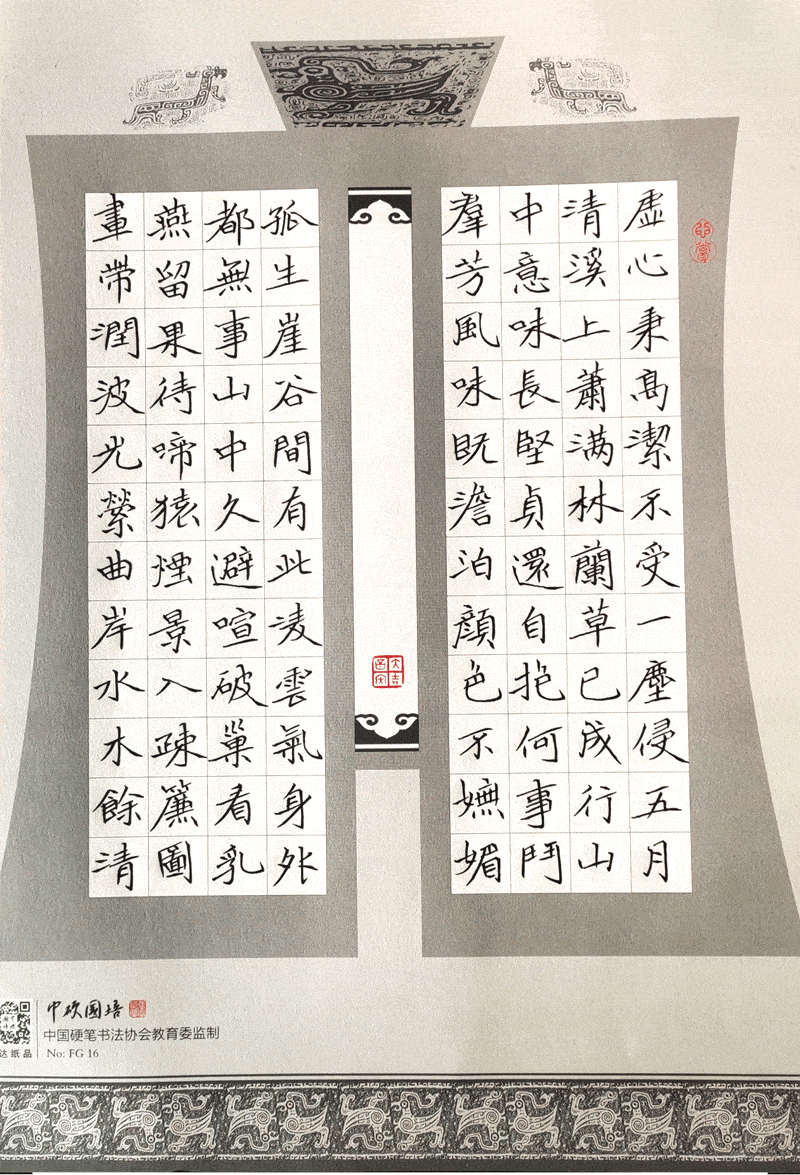 虛心秉高潔不受一塵侵五月
清溪上蕭滿林蘭草已成行山
中意味長堅貞還自抱何事鬥
羣芳風味既澹泊顏色不嫵媚
孤生崖谷間有此凌雲氣身外
都無事山中久避喧破巢看乳
燕留果待啼猿煙景入疎簾圖
畫帶潤波光縈曲岸水木餘清
中硬國培
中国硬笔书法协会教育委监制
达纸品
No: FG 16